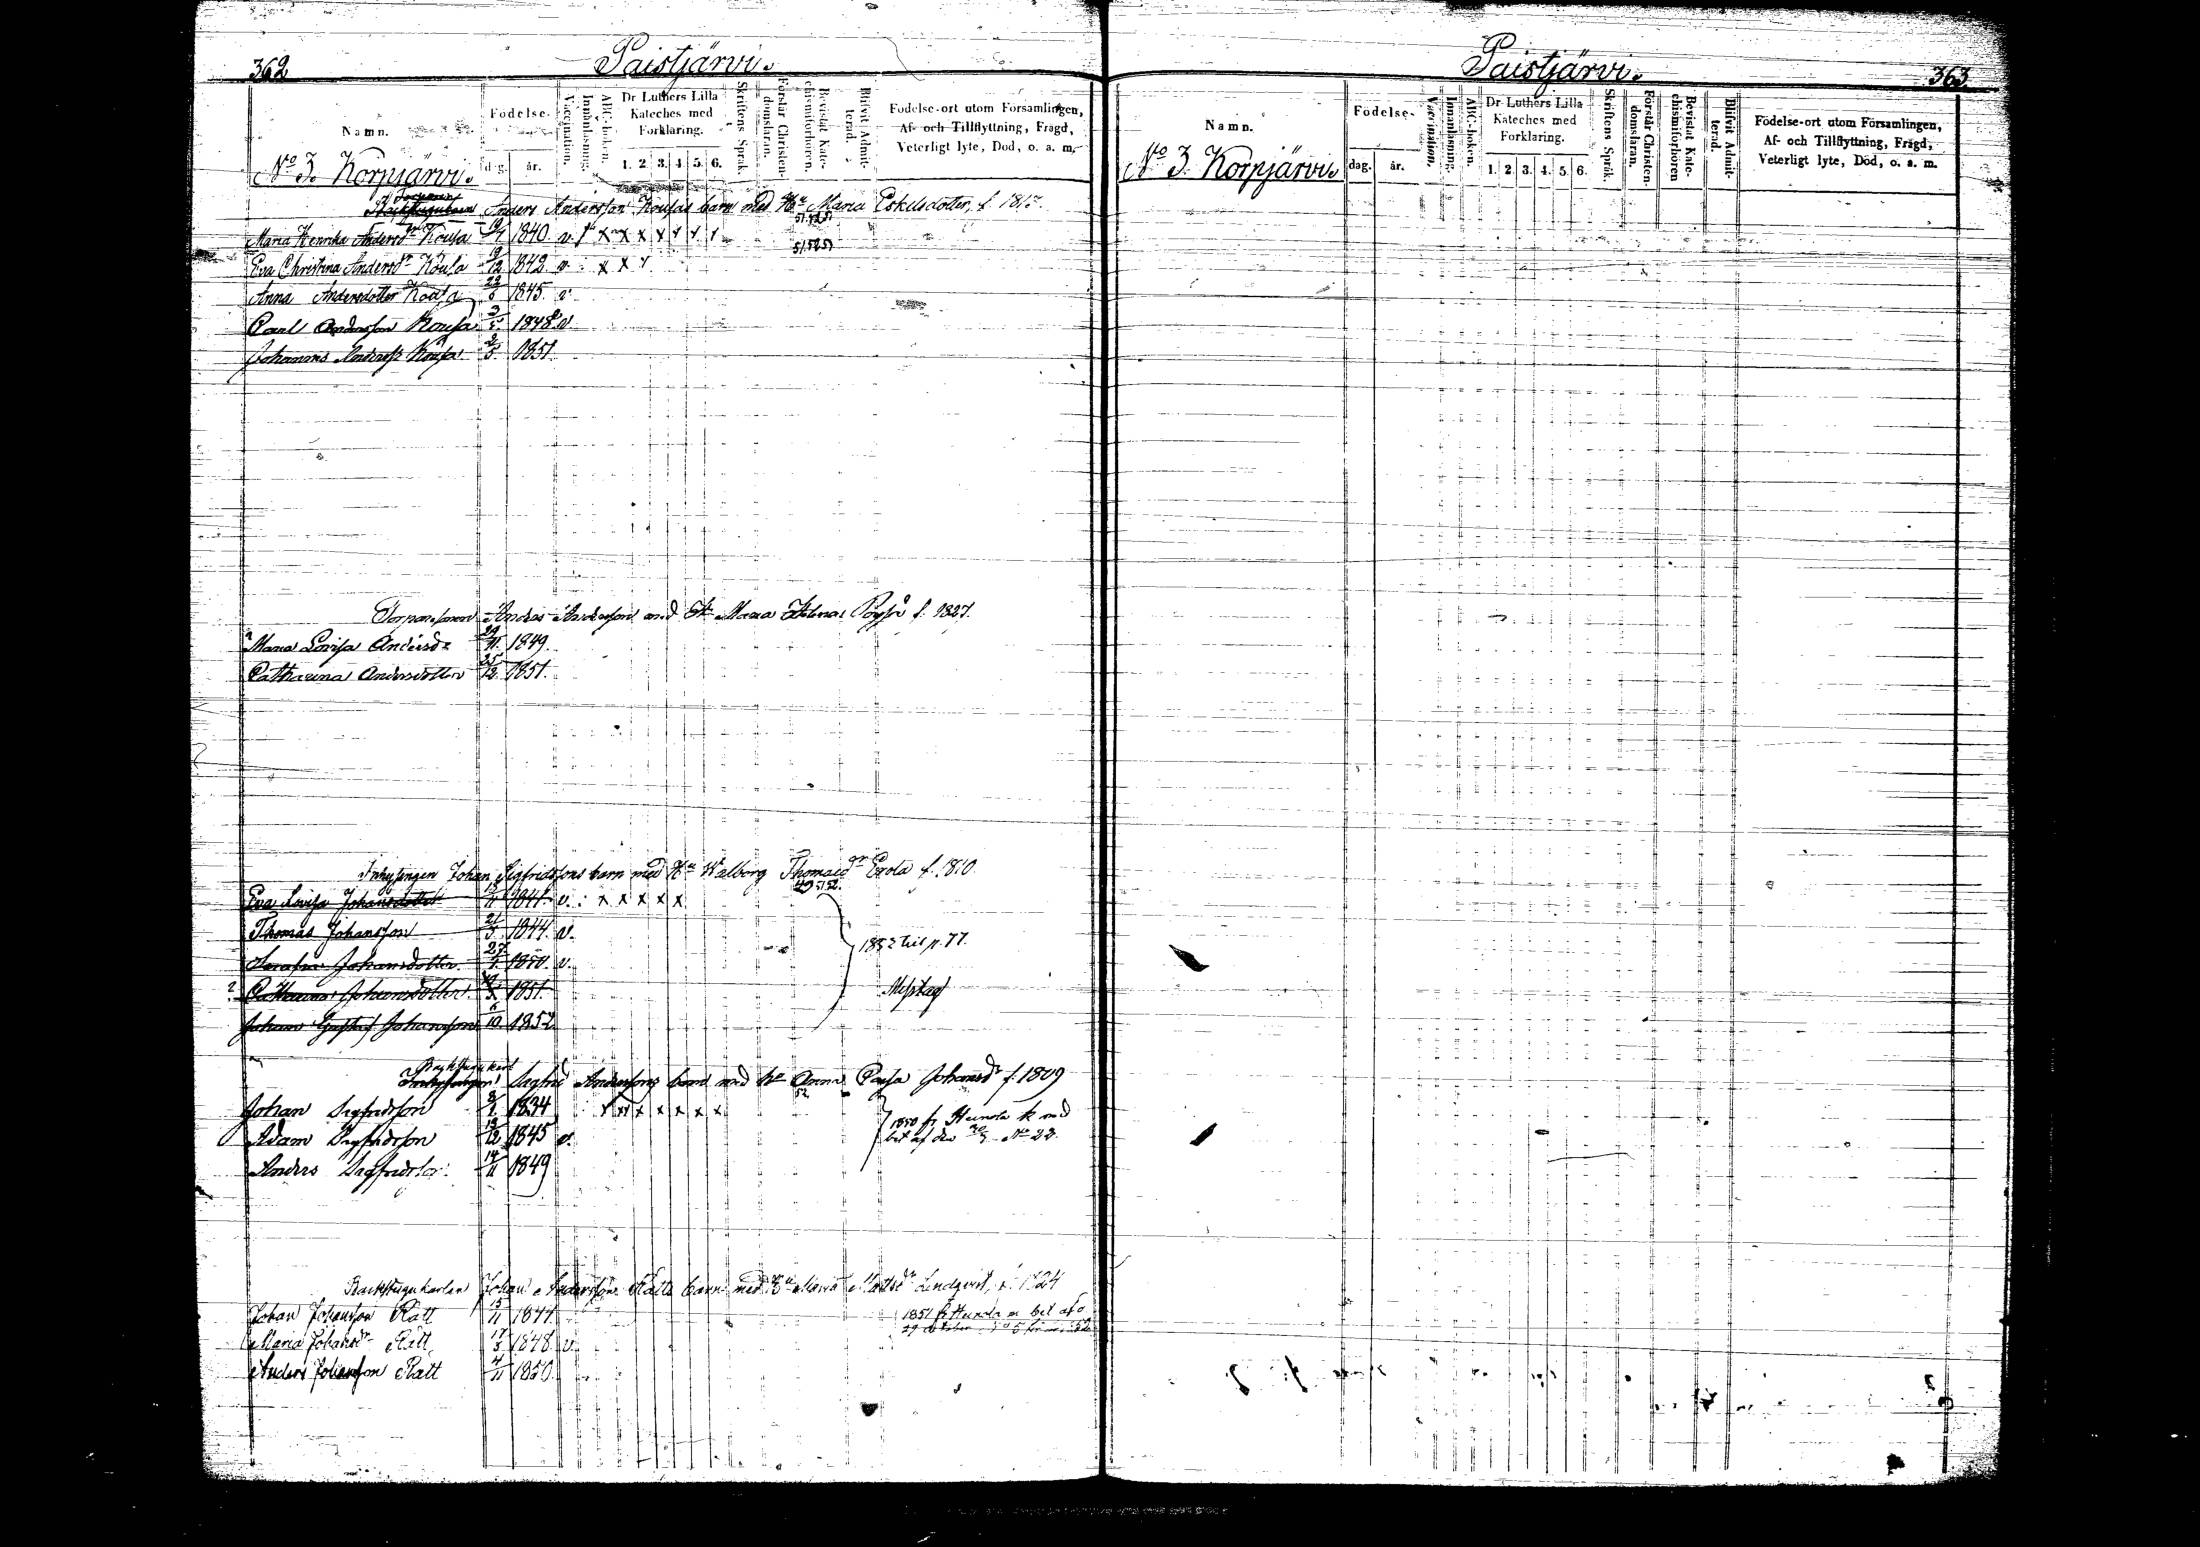 362
Paistjärvi.
Namn.
Födelse.
dag.
år.
Vaccination.
Innanläsning.
ABC-boken.
Dr Luthers Lilla
Kateches med
Förklaring.
1. 2. 3. 4. 5. 6.
Skriftens Språk.
Förstår Christen-
domsläran.
Bevistat Kate-
chismiförhören.
Blifvit Admit-
terad.
Födelse-ort utom Församlingen,
Af- och Tillflyttning, Frägd,
Veterligt lyte, Död, o. a. m.
No 3. Korpjärvi.
Anders Andersson Kousas barn med Hu Maria Eskelsdotter, f. 1817.
Maria Henrika Andersdr Kousa 1840. v. x x x x
Eva Christina Andersdr Kousa 9/12 1842 v. x x
Anna Andersdotter Kousa 1845. v.
Paul Andersson Kousa 3/5 1848. v.
Johannes Anderss. Kousa 2/5 1851.
Anders Andersson med Maria Helena f. 1827.
Maria Lovisa Andersdr 29/11 1849.
Catharina Andersdotter 25/12 1851.
Inhysingen Johan Sigfridssons barn med Hu Walborg Thomasdr Erola f. 1810.
49 51 52.
Eva Lovisa Johansdotter 1841. v. x x x x x
Thomas Johansson 21/5 1844. v.
1852 till p. 77.
Johansdotter 1850. v.
Catharina Johansdotter 1851.
Misstag
Johan Gustaf Johansson 6/10 1852
Backstugukarl
Sigfrid Anderssons barn med Hu Anna Johansdr f. 1809
52.
Johan Sigfridsson 8/1 1834 x x x x x x
1850 fr Heinola k med
Adam Sigfridsson 13/12 1845 v.
bet af den 30/3 No 22.
Anders Sigfridsson 14/11 1849
Backstugukarlen Johan Andersson Rätts barn med Hu Maria Mattsdr Lindqvist, f. 1824
Johan Johansson Rätt 15/11 1844
1851 fr Heinola m bet af
Maria Johansdr Rätt 17/3 1848 v.
Anders Johansson Rätt 4/11 1850.
Paistjärvi.
363.
Namn.
Födelse-
dag.
år.
Vaccination.
Innanläsning.
ABC-boken.
Dr Luthers Lilla
Kateches med
Förklaring.
1. 2. 3. 4. 5. 6.
Skriftens Språk.
Förstår Christen-
domsläran.
Bevistat Kate-
chismiförhören
Blifvit Admit-
terad.
Födelse-ort utom Församlingen,
Af- och Tillflyttning, Frägd,
Veterligt lyte, Död, o. a. m.
No 3. Korpjärvi.